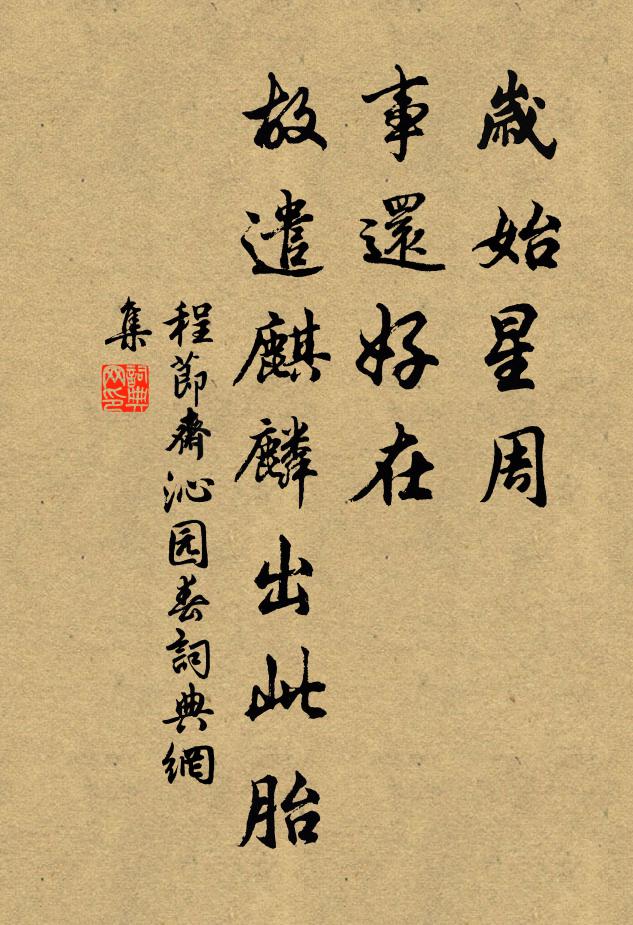 歲始星周
事還好在
故遣麒麟出此胎
程節齋沁园春詞典網
集
詞典
网印